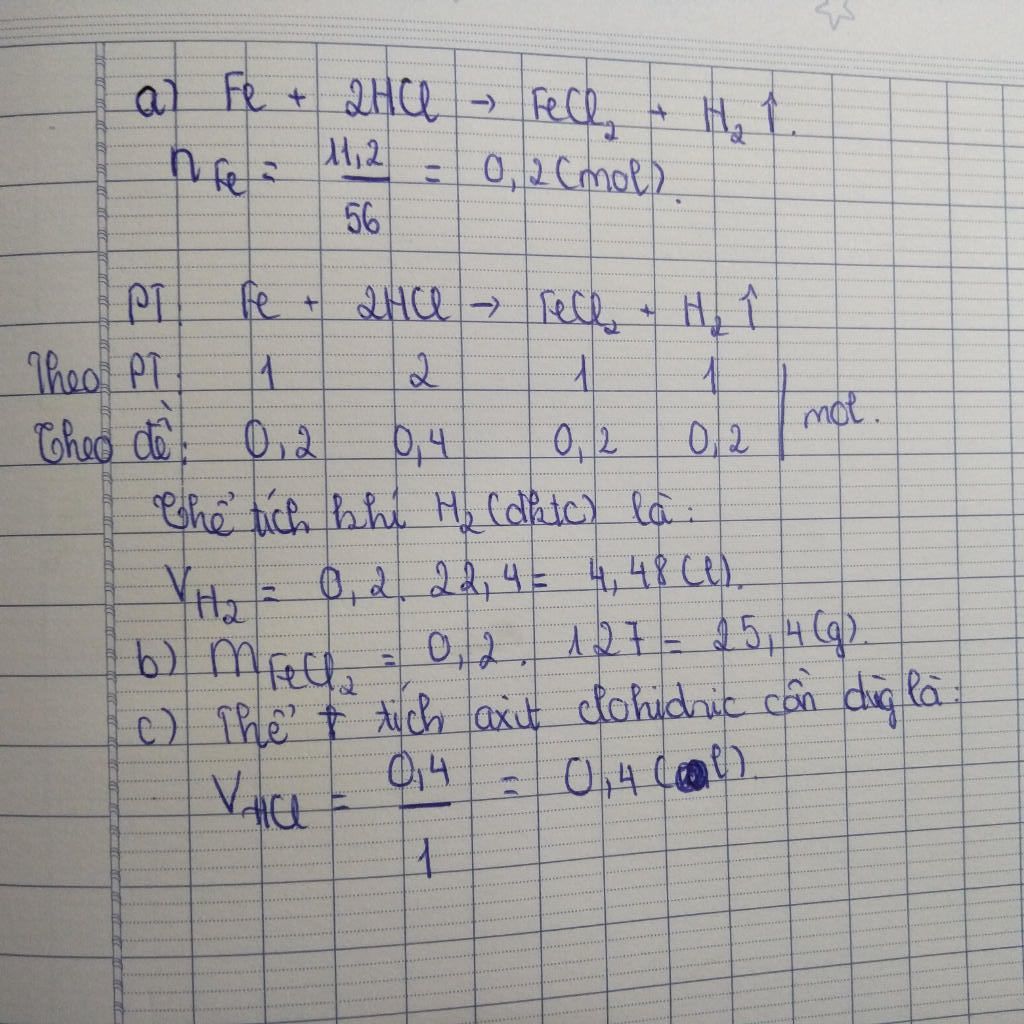 a) Fe + 2HCl → FeCl₂ + H₂ ↑.
nFe = 11,2/56 = 0,2 (mol).
PT Fe + 2HCl → FeCl₂ + H₂ ↑
Theo PT: 1 2 1 1
Theo đề: 0,2 0,4 0,2 0,2 | mol.
Thể tích khí H₂ (đktc) là:
VH₂ = 0,2 . 22,4 = 4,48 (l).
b) mFeCl₂ = 0,2 . 127 = 25,4 (g).
c) Thể tích axit clohidric cần dùg là:
VHCl = 0,4/1 = 0,4 (l).